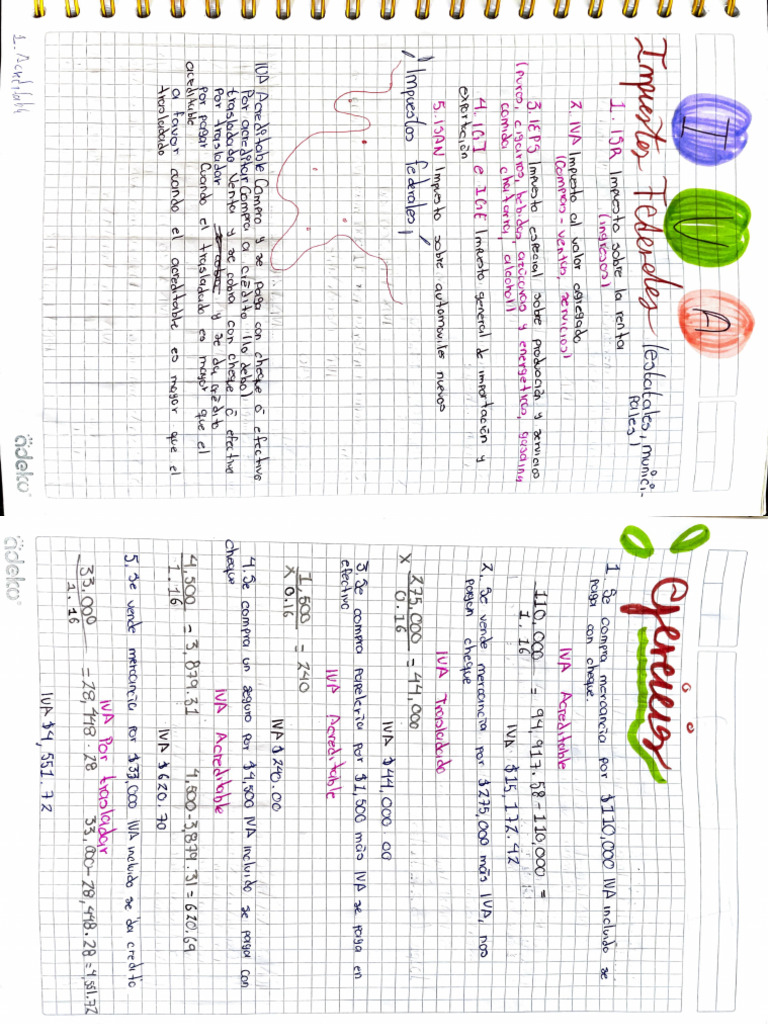 I V A
Impuestos Federales (estatales, munici-
pales)
1. ISR Impuesto sobre la renta
(ingresos)
2. IVA Impuesto al valor agregado
(Compras - ventas, servicios)
3. IEPS Impuesto especial sobre producción y servicios
(puros, cigarros, bebidas, azúcaradas y energeticas, gasolina
comida chatarra, alcohol)
4. IGI e IGE Impuesto general de importación y
exportación
5. ISAN Impuesto sobre automoviles nuevos
¡Impuestos federales!
IVA Acreditable Compro y se paga con cheque ó efectivo
Por acreditar Compra a crédito (lo debo)
trasladado Venta y se cobra con cheque ó efectivo
por trasladar y se da crédito
por pagar Cuando el trasladado es mayor que el
acreditable
a favor cuando el acreditable es mayor que el
trasladado
1. Acreditable
ädeko
Ejercicios
1. Se compra mercancía por $110,000 IVA incluido se
paga con cheque.
IVA Acreditable
110,000
1.16
= 94,917.58-110,000=
IVA $15,172.42
2. Se vende mercancía por $275,000 más IVA, nos
pagan cheque
IVA Trasladado
275,000
x 0.16
= 44,000
IVA $44,000 00
3 Se compra papelería por $1,500 más IVA se paga en
efectivo
IVA Acreditable
1,500
x 0.16
= 240
IVA $240.00
4. Se compra un seguro por $4,500 IVA incluido se paga con
cheque
IVA Acreditable
4,500
1.16
= 3,879.31 4,500-3,879.31=620.69
IVA $620.70
5. Se vende mercancía por $33,000 IVA incluido se da crédito
IVA Por trasladar
33,000
1.16
=28,448.28 33,000-28,448.28=4,551.72
IVA $4,551.72
ädeko